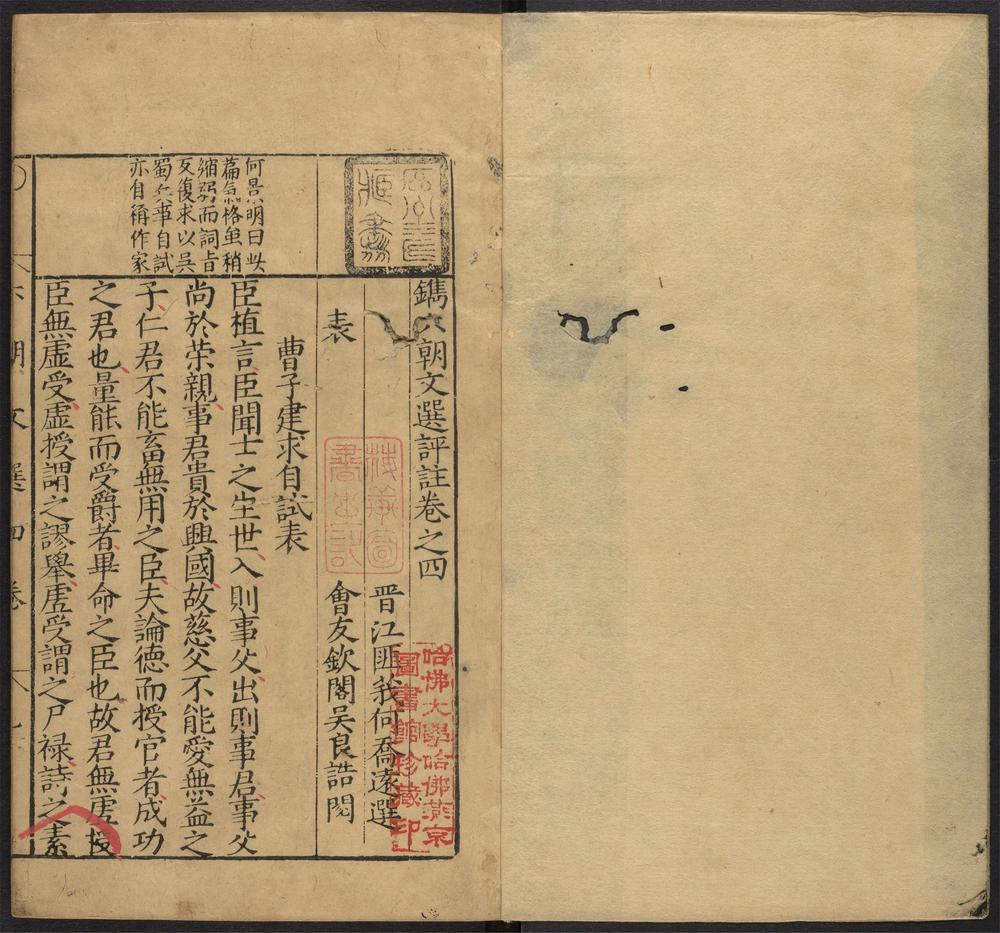 鐫六朝文選評註卷之四
晉江匪我何喬遠選
會友欽閣吳良誥閱
表
曹子建求自試表
臣植言臣聞士之生世入則事父出則事君事父
尚於荣親事君貴於興國故慈父不能愛無益之
子仁君不能畜無用之臣夫論德而授官者成功
之君也量能而受爵者畢命之臣也故君無虛授
臣無虛受虛授謂之謬舉虛受謂之尸禄詩之素
何景明曰此
篇氣格虽稍
缩弱而詞旨
反復求以吴
蜀兵事自試
亦自稱作家
六朝文選 四卷
哈佛大學哈佛燕京
圖書館珍藏印
藏書